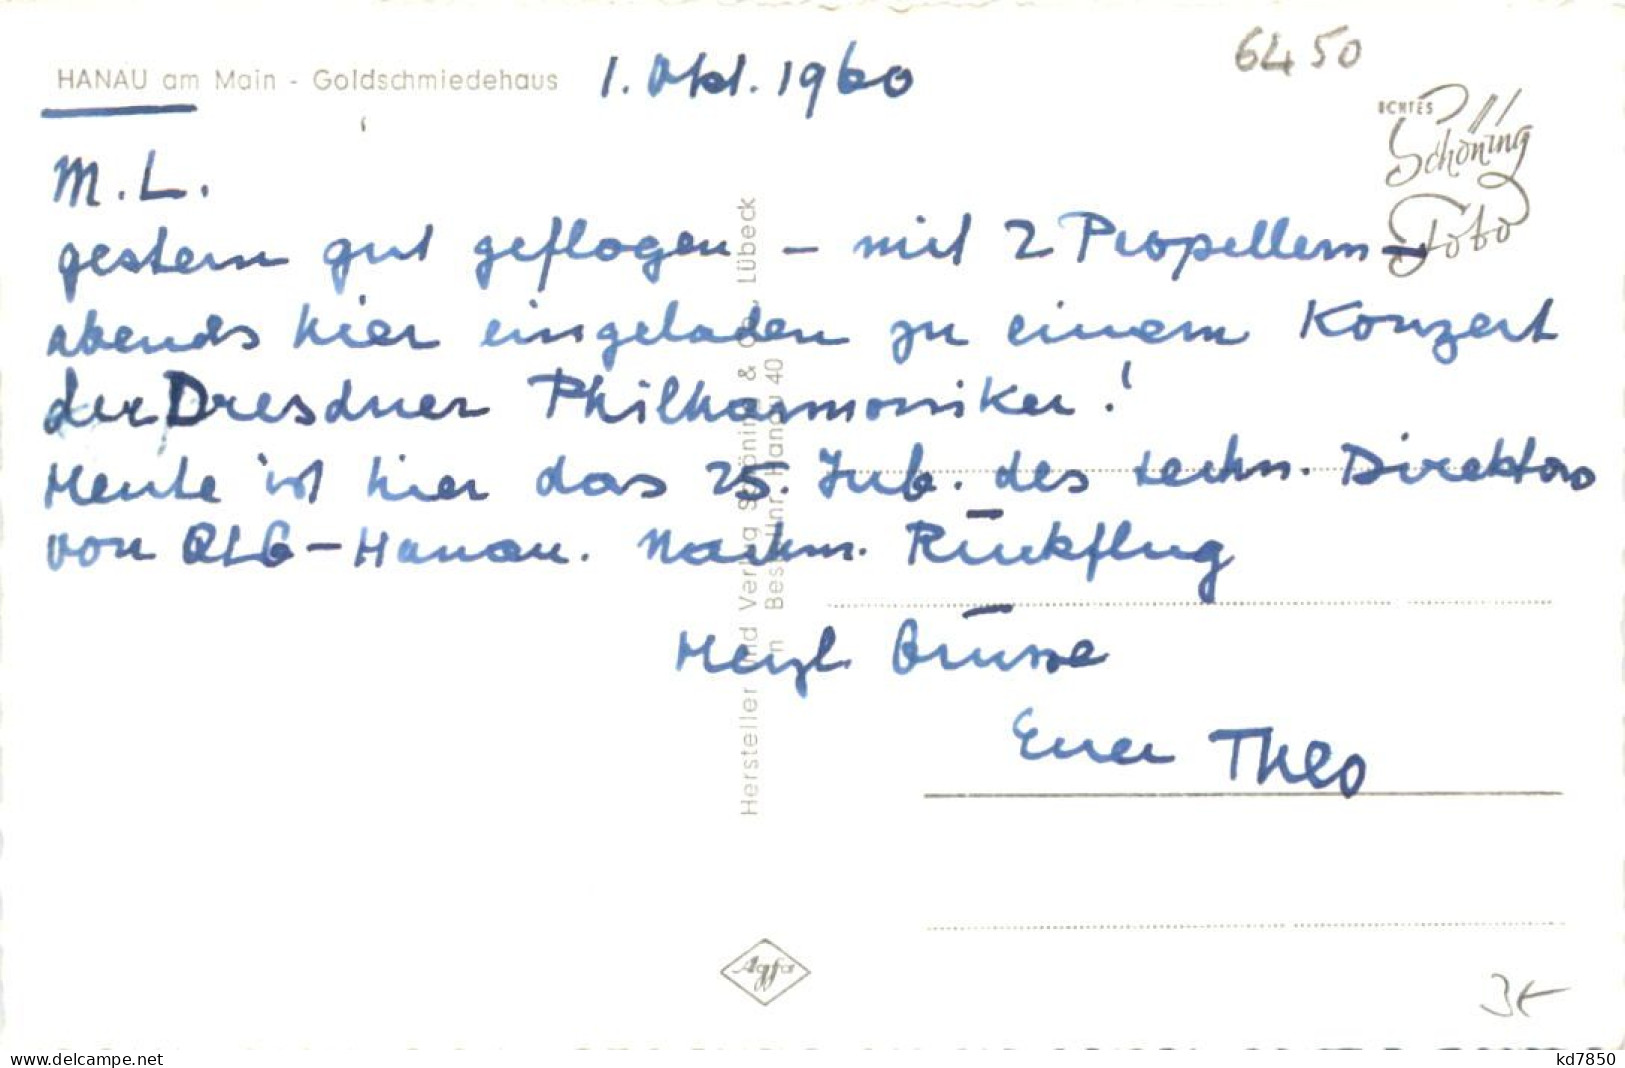 HANAU am Main - Goldschmiedehaus
1. Okt. 1960
6450
ECHTES
Schöning
Foto
M. L.
gestern gut geflogen – mit 2 Propellern –
abends hier eingeladen zu einem Konzert
der Dresdner Philharmoniker!
Heute ist hier das 25. Jub. des techn. Direktors
von QLG-Hanau. Nachm. Rückflug
Herzl. Grüsse
Euer Theo
Hersteller und Verlag Schöning & Co., Lübeck
Best.-Nr. Hanau 40
Agfa
www.delcampe.net
kd7850